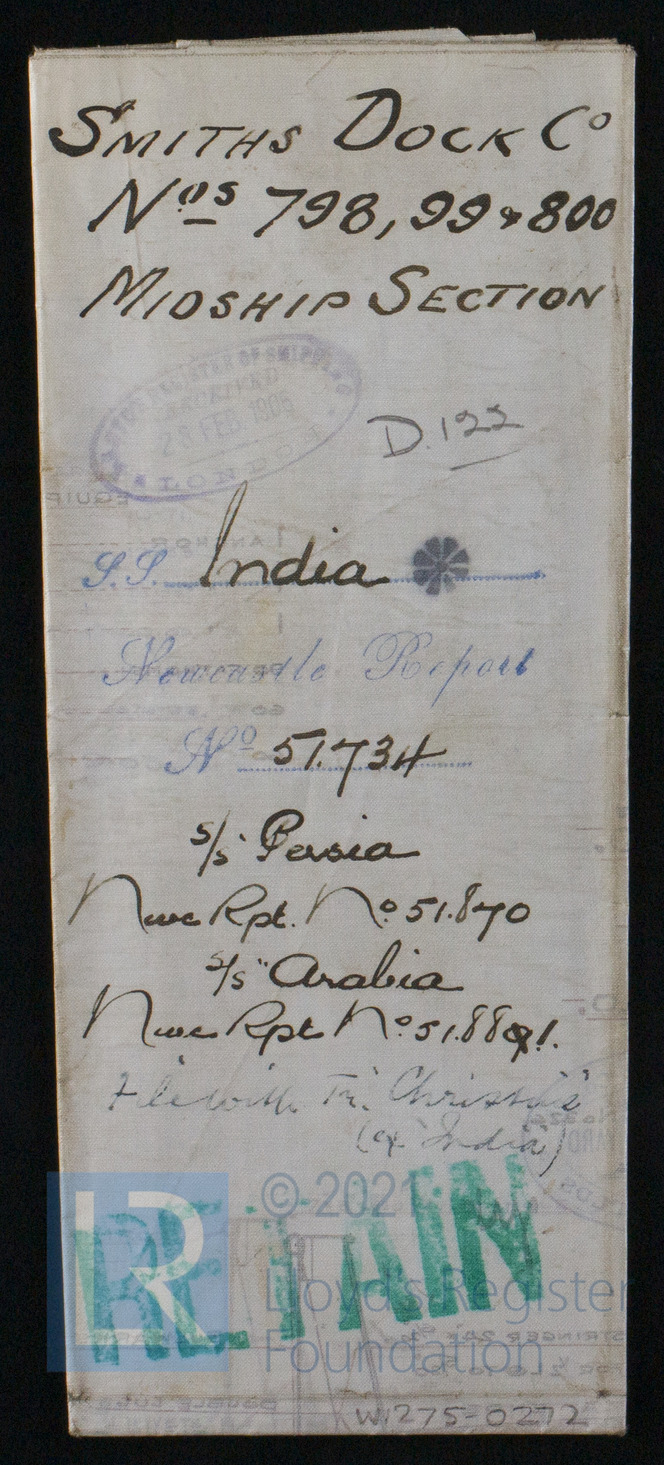 SMITHS DOCK Cº
Nos 798, 99 & 800
MIDSHIP SECTION
REGISTER OF SHIPPING
RECEIVED
28 FEB. 1905
LONDON
D.122
S.S. India
Newcastle Report
Nº 51.734
s/s Persia
Nwc Rpt. Nº 51.870
s/s Arabia
Nwc Rpt Nº 51.8891.
File with
(ex India)
© 2021
RETAIN
LR
Lloyd's Register
Foundation
W1275-0272